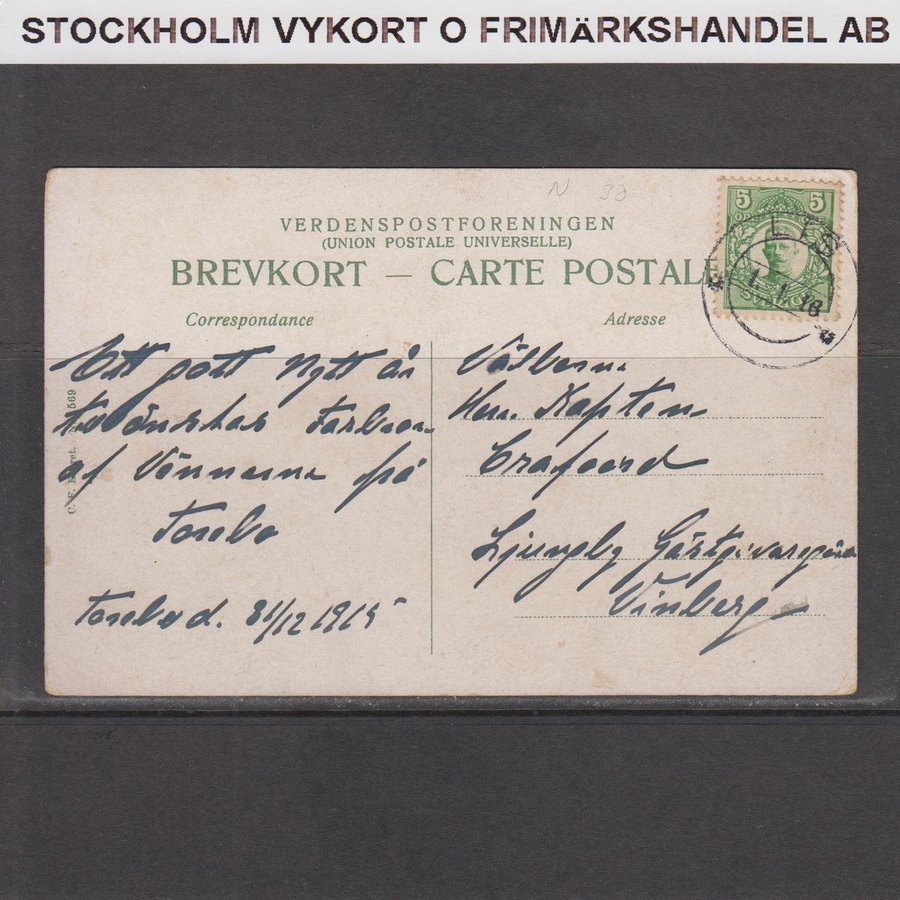 STOCKHOLM VYKORT O FRIMÄRKSHANDEL AB
N 30
VERDENSPOSTFORENINGEN
(UNION POSTALE UNIVERSELLE)
BREVKORT — CARTE POSTALE
5 5
1. 1. 16
Correspondance
Adresse
Ett gott nytt år
tillönskas Farbror
af Vännerna på
Torebo
Torebo d. 31/12 1915
Välborne
Herr Kapten
Crafoord
Ljungby Gästgivaregård
Vinberg
569